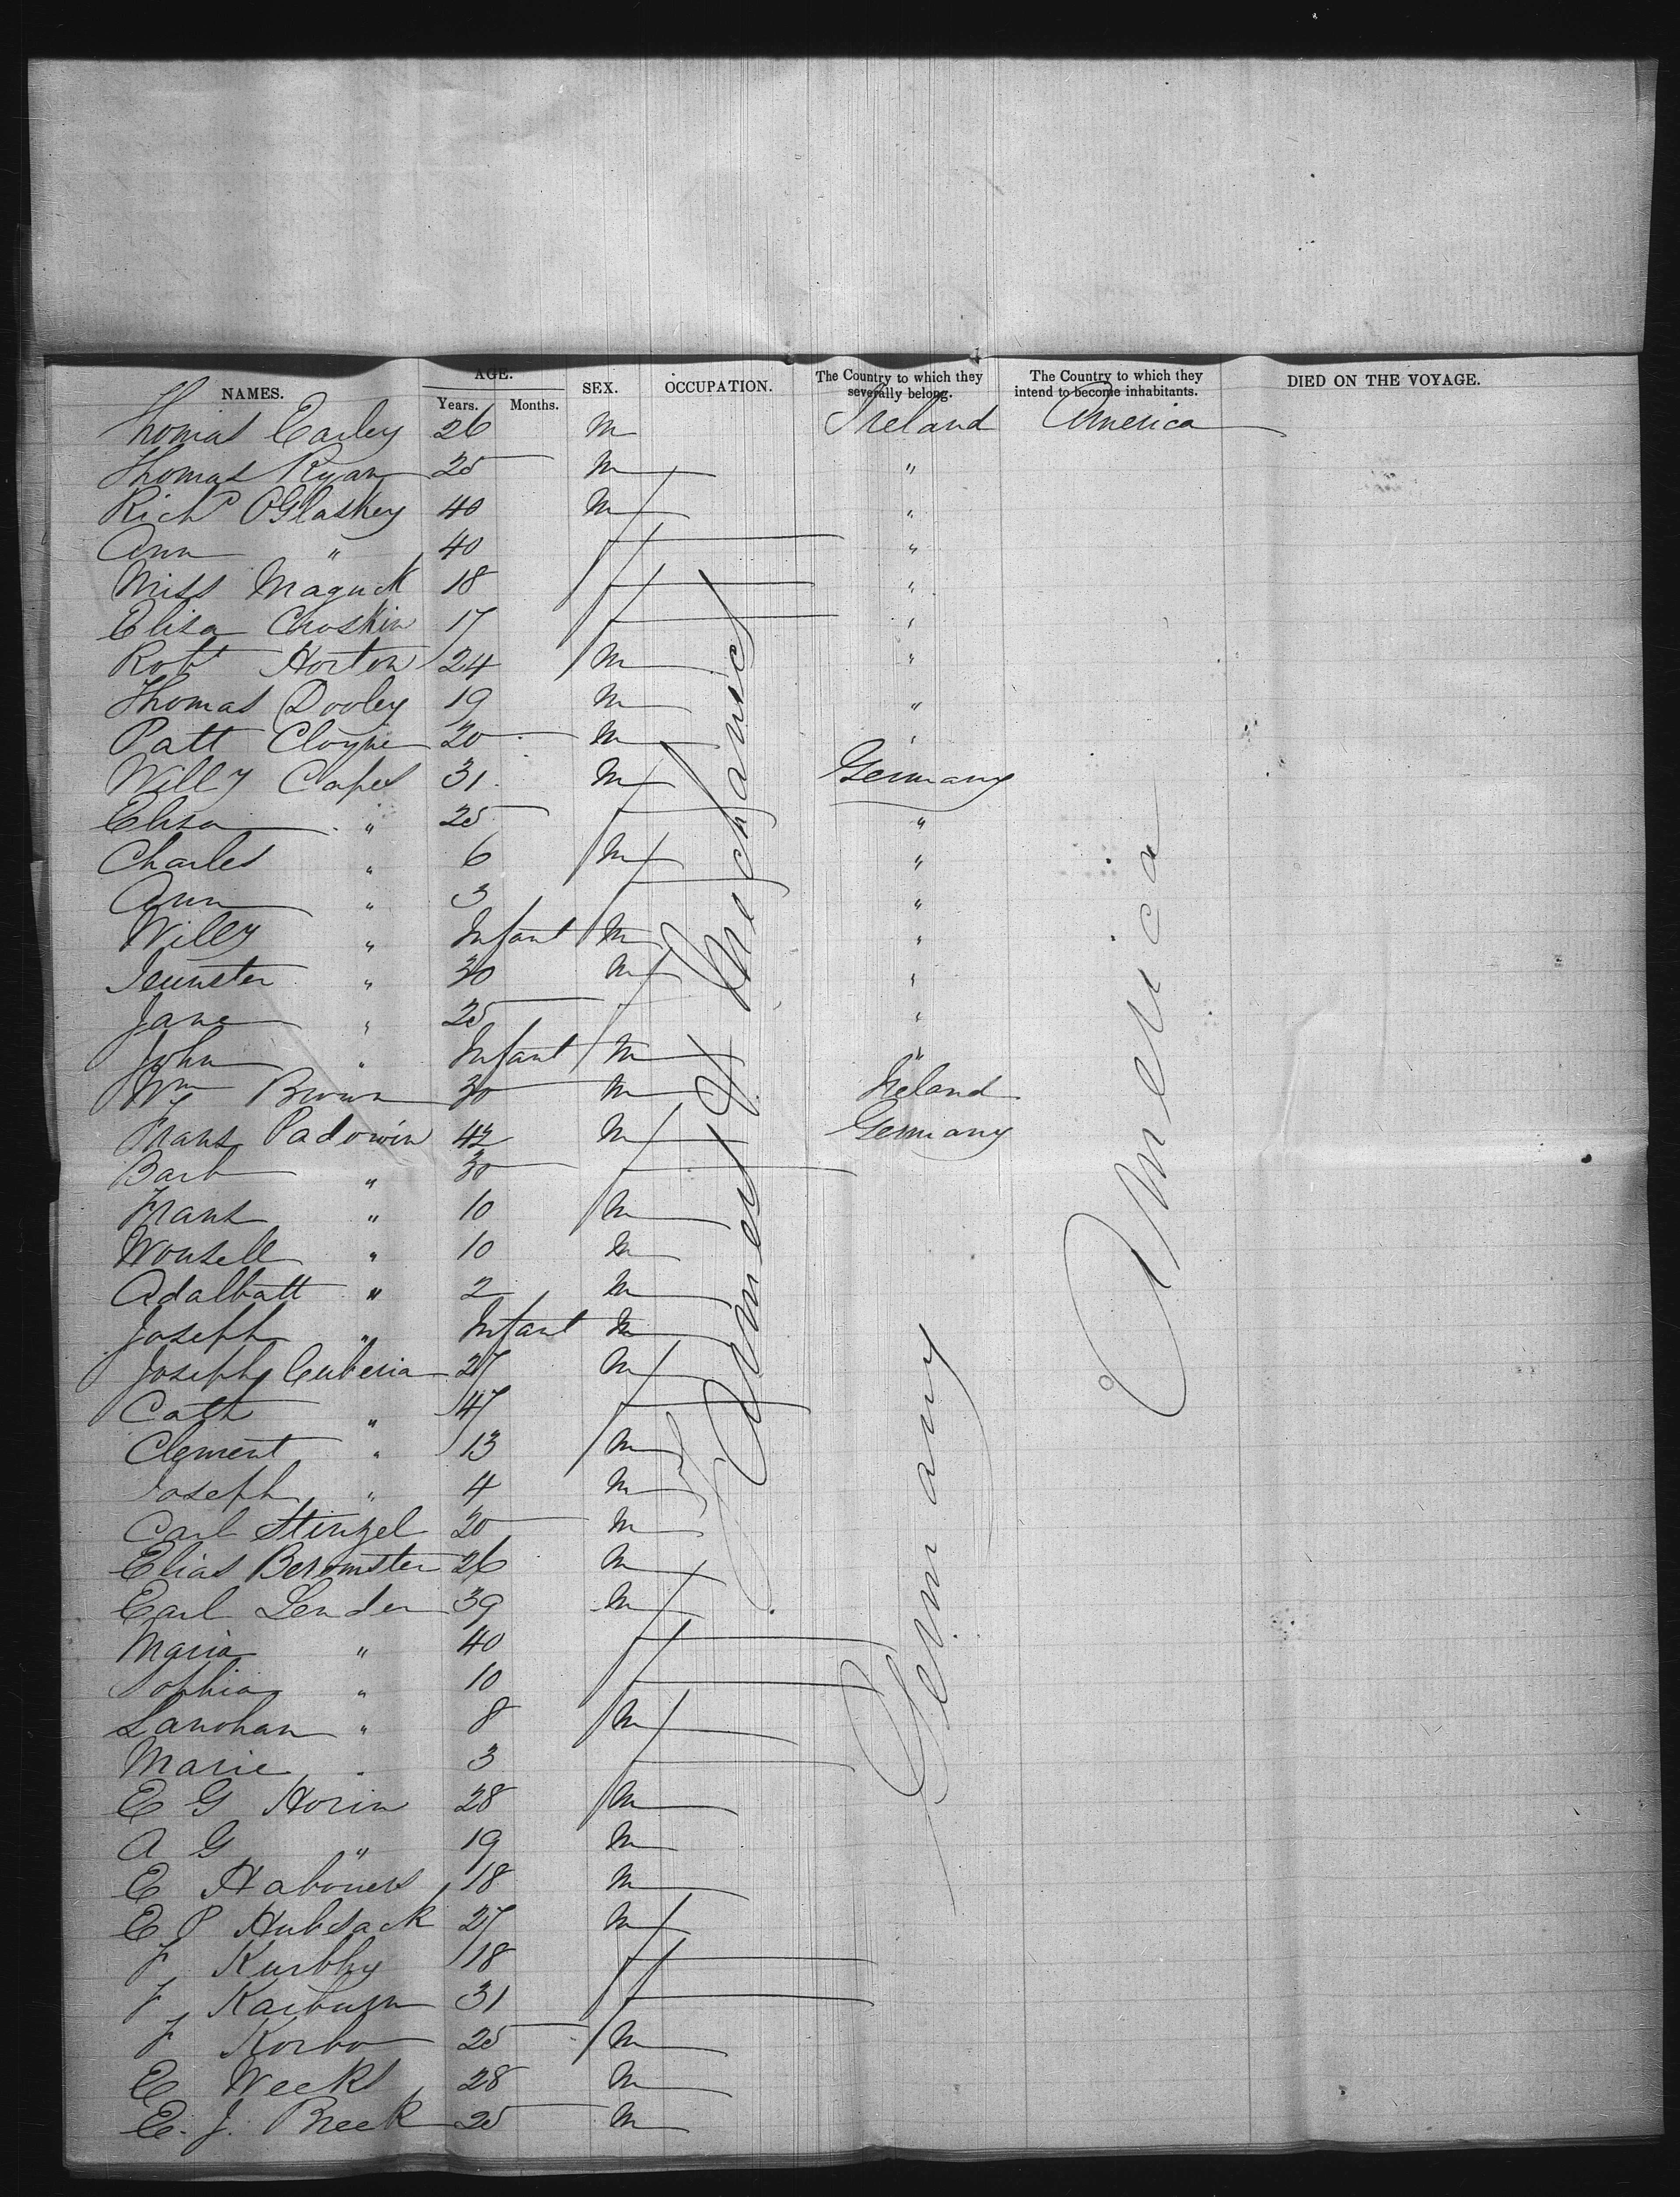 NAMES. AGE. Years. Months. SEX. OCCUPATION. The Country to which they severally belong. The Country to which they intend to become inhabitants. DIED ON THE VOYAGE.
Thomas Earley 26 M Ireland America
Thomas Ryan 25 M "
Richd O'Glashey 40 M "
Ann " 40 f "
Miss 18 f "
Elisa Croskin 17 f "
Robt Horton 24 M "
Thomas Dooley 19 M "
Patt Cloyne 20 M "
Willy Capes 31 M Germany
Elisa " 25 f "
Charles " 6 M "
Ann " 3 f "
Willy " Infant M "
" 30 M "
Jane " 25 f "
John " Infant M "
Wm Brown 30 M Ireland
Frans Padowin 42 M Germany
Barb " 30 f
Frans " 10 M
Wonsell " 10 M
Adalbatt " 2 M
Joseph " Infant M
Joseph Cuberia 27 M
Cath " 47 f
Clement " 13 M
Joseph " 4 M
Carl Stinzel 20 M
Elias Beromster 26 M
Earl Lender 39 M
Maria " 40 f
Sophia " 10 f
Lanohan " 8 M
Marie " 3 f
E G Horin 28 M
A G " 19 M
E Habouers 18 M
E P Hubsack 27 M
F Kurbhy 18 f
F 31 f
F Korbo 25 M
E Weeks 28 M
E. J. Breek 25 M
Farmers & Mechanics
Germany
America